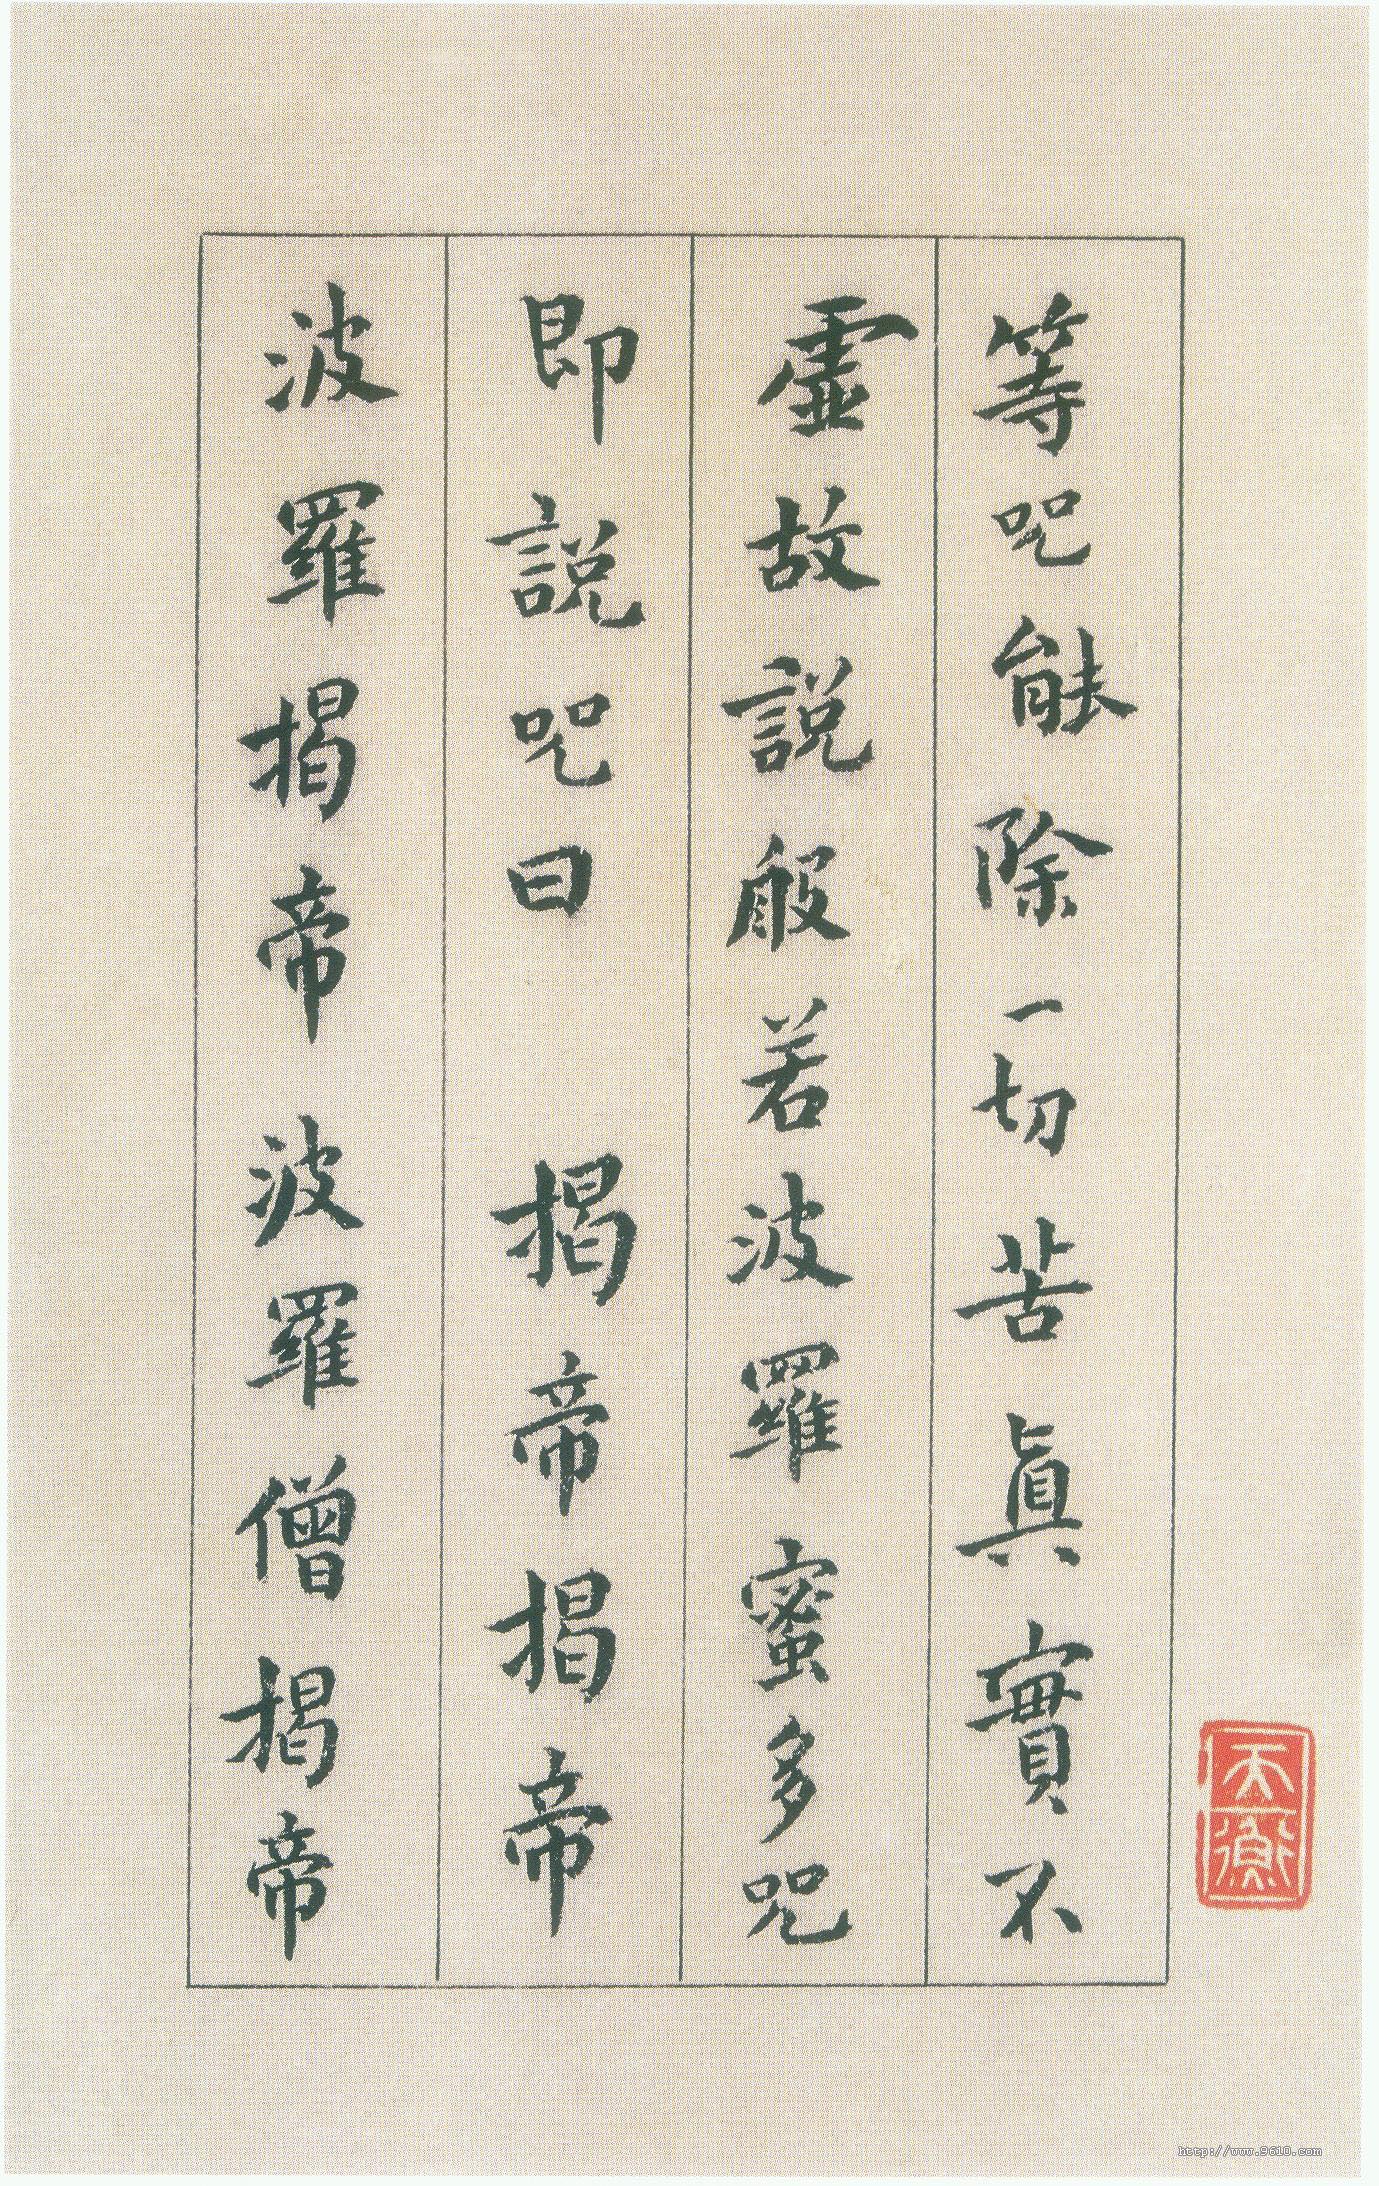 等咒能除一切苦真實不
虛故說般若波羅蜜多咒
即說咒曰 揭帝揭帝
波羅揭帝 波羅僧揭帝
天衡
http://www.9610.com